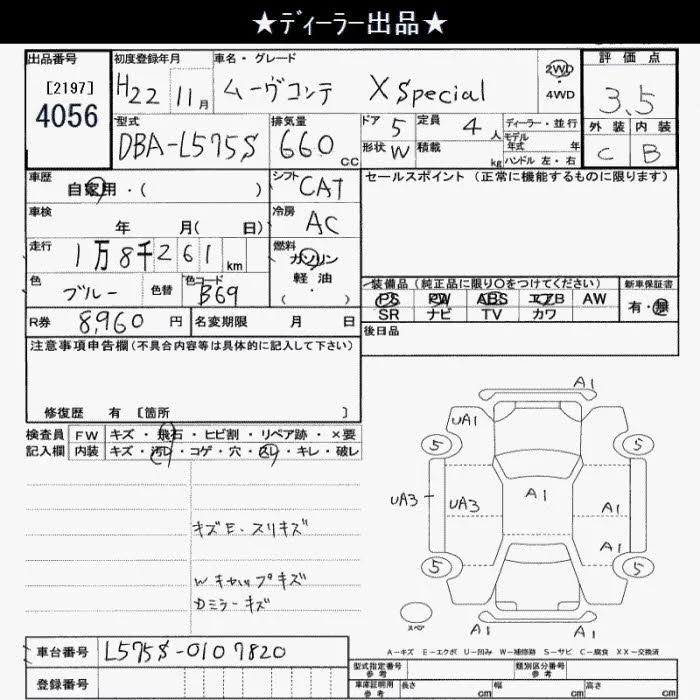 ★ディーラー出品★
出品番号 [2197] 4056
初度登録年月 H22 11月
車名・グレード ムーヴコンテ X Special
2WD
4WD
評価点 3.5
外装 内装
C B
型式 DBA-L575S
排気量 660 CC
ドア 5 定員 4 人
形状 W 積載 kg
ディーラー・並行
モデル年式 年
ハンドル 左・右
車歴 自家用・( )
シフト CAT
セールスポイント (正常に機能するものに限ります)
車検 年 月( 日)
冷房 AC
走行 1万8千261km
燃料 ガソリン
軽油
( ・ )
色 ブルー 色替 色コード B69
装備品(純正品に限り○をつけてください)
PS PW ABS エアB AW
SR ナビ TV カワ
新車保証書
有・無
R券 8,960円 名変期限 月 日
後日品
注意事項申告欄(不具合内容等は具体的に記入して下さい)
修復歴 有 [箇所 ]
検査員 FW キズ・飛石・ヒビ割・リペア跡・×要
記入欄 内装 キズ・汚レ・コゲ・穴・スレ・キレ・破レ
キズE・スリキズ
Wキャップキズ
Dミラーキズ
A1
UA1
5 5
UA3 UA3 A1 A1
A1
5 5
スペア
A1 A1
A-キズ E-エクボ U-凹み W-補修跡 S-サビ C-腐食 XX-交換済
車台番号 L575S-0107820
登録番号
型式指定番号 参考 類別区分番号 参考
車庫証明用 参考 長さ cm 幅 cm 高さ cm